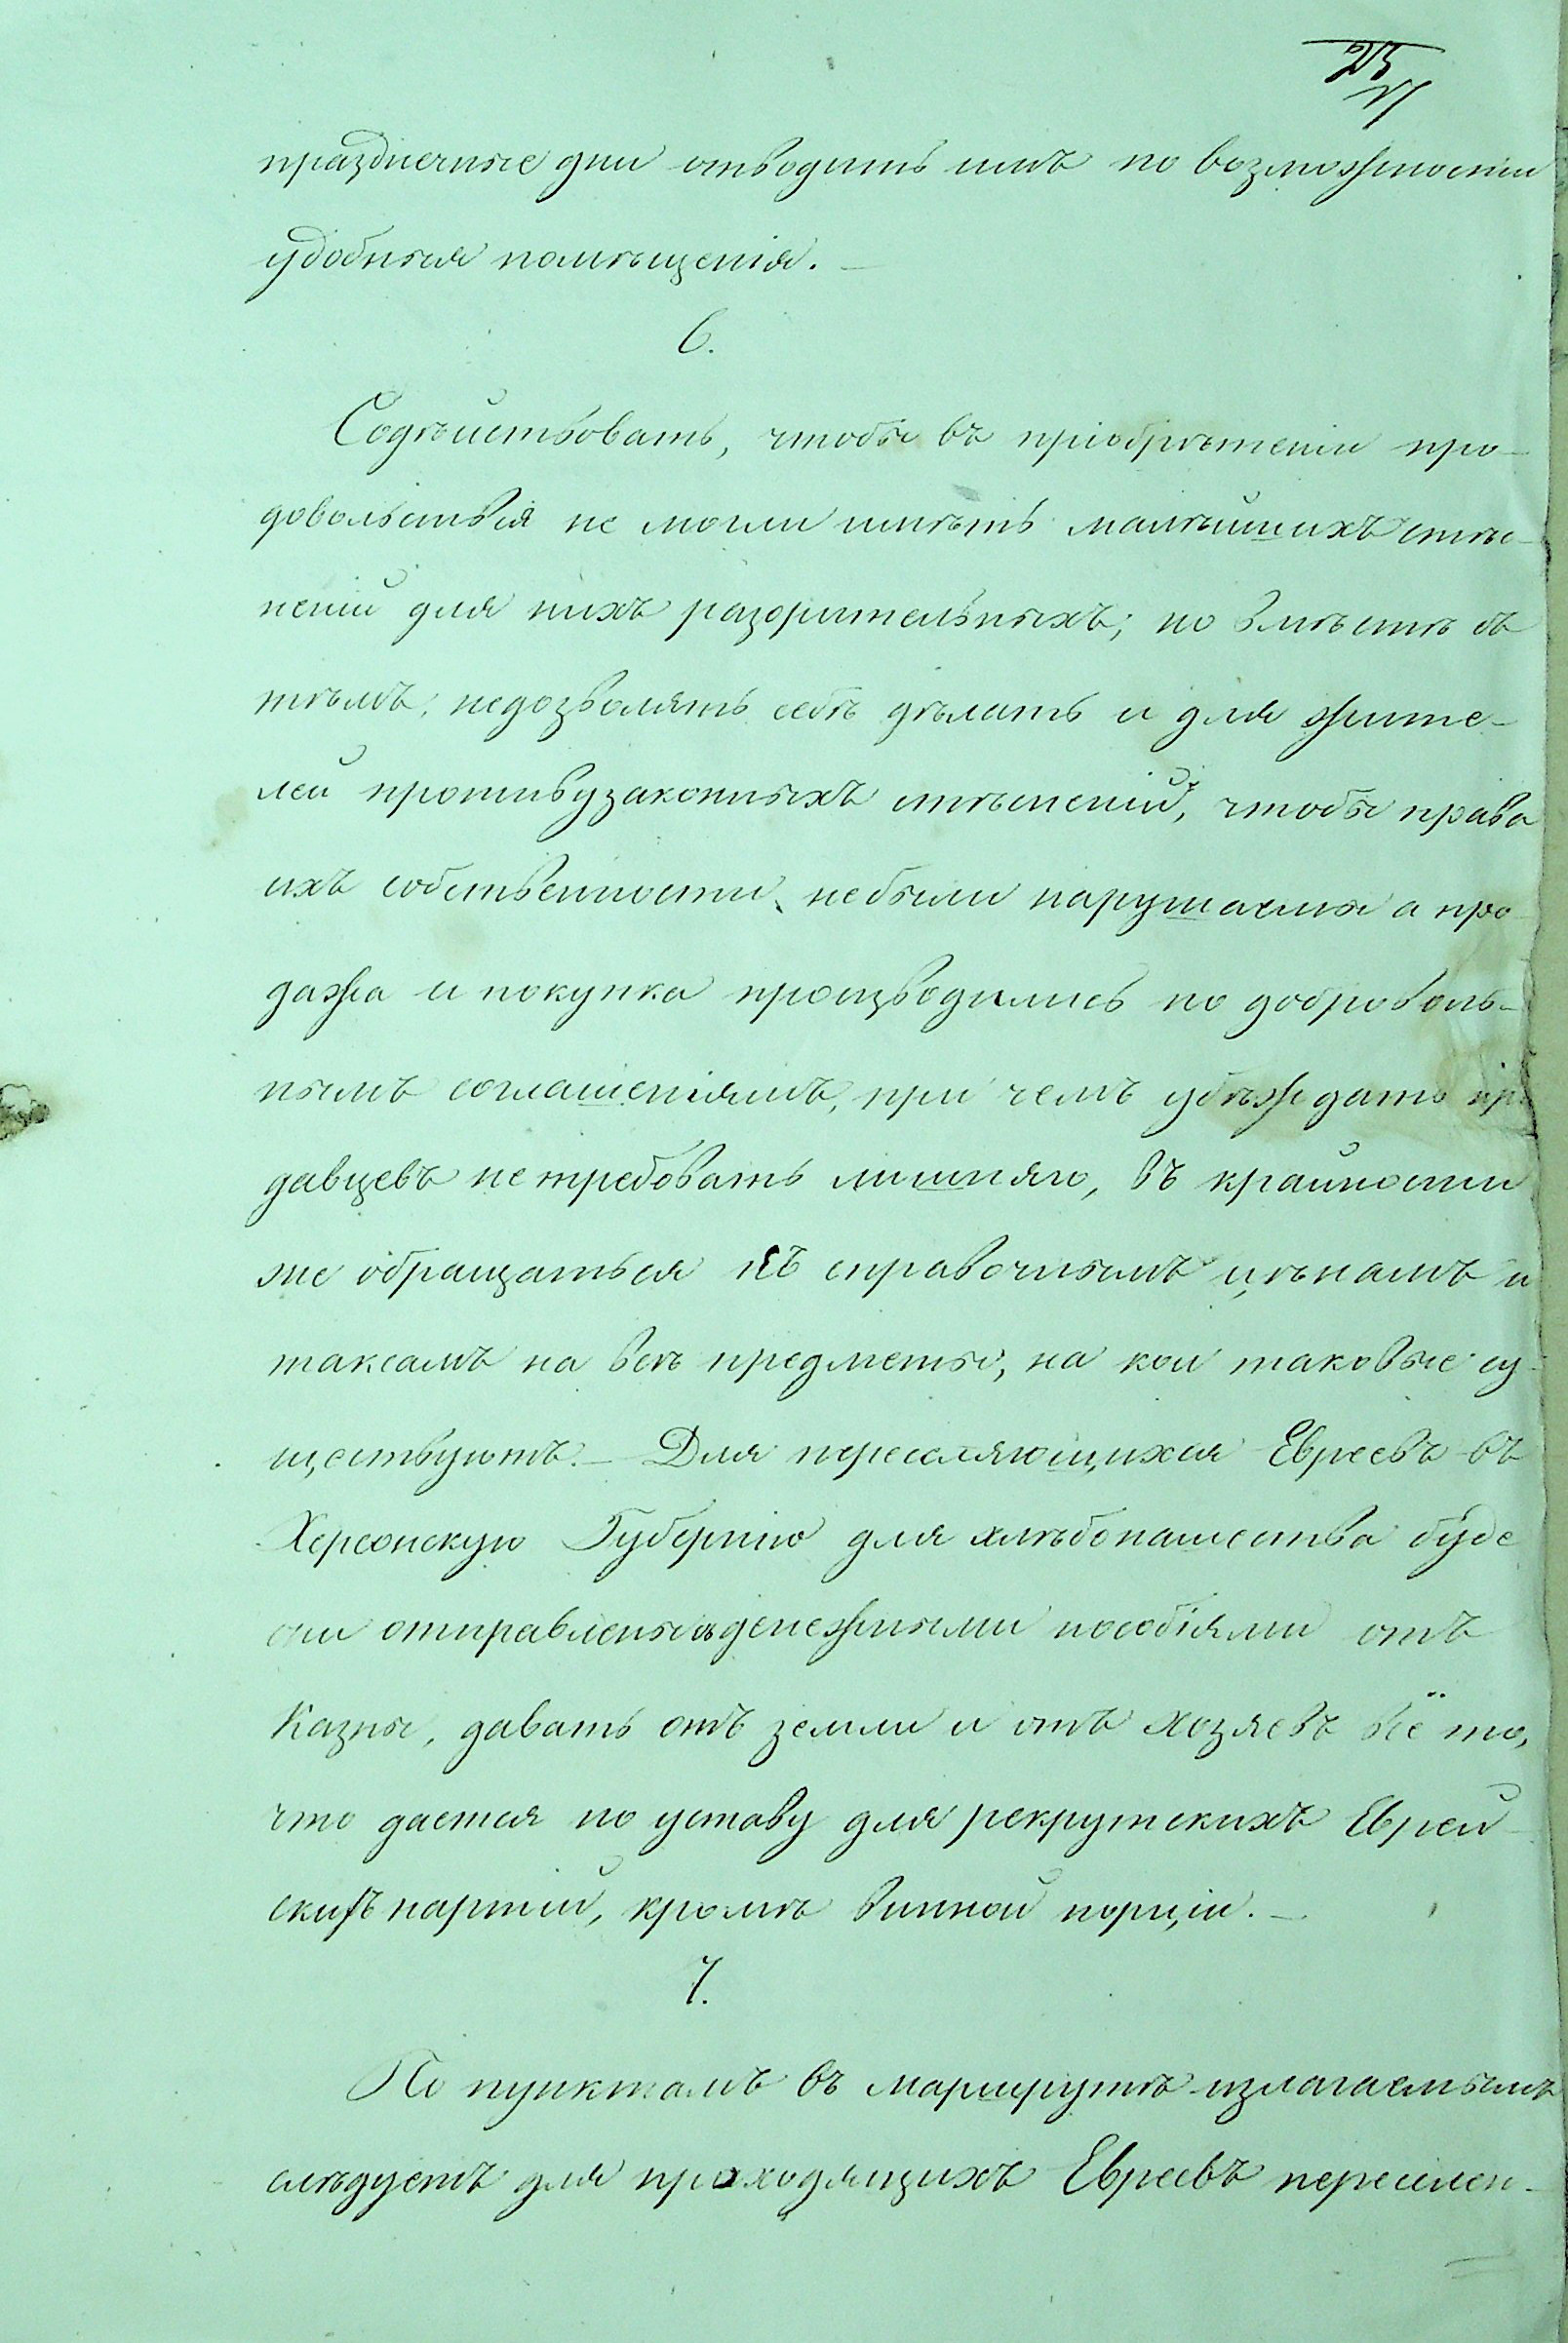 праздничные дни отводить имъ по возможности
удобныя помѣщенія. —
6.
Содѣйствовать, чтобы въ пріобрѣтеніи про-
довольствія не могли имѣть малѣйшихъ стѣс-
неній для нихъ разорительныхъ; но вмѣстѣ съ
тѣмъ, недозволять себѣ дѣлать и для жите-
лей противузаконныхъ стѣсненій, чтобы права
ихъ собственности, небыли нарушаемы а про
дажа и покупка производились по доброволь-
нымъ соглашеніямъ, при чемъ убѣждать про
давцевъ не требовать лишняго, въ крайности
же обращаться къ справочнымъ цѣнамъ и
таксамъ на всѣ предметы, на кои таковые су-
ществуютъ. — Для переселяющихся Евреевъ въ
Херсонскую Губернію для хлѣбопашества буде
они отправлены съ денежными пособіями отъ
Казны, давать отъ земли и отъ хозяевъ всё то,
что дается по уставу для рекрутскихъ Еврей-
скихъ партій, кромѣ винной порціи. —
7.
По пунктамъ въ маршрутѣ излагаемымъ
слѣдуетъ для проходящихъ Евреевъ переселен-